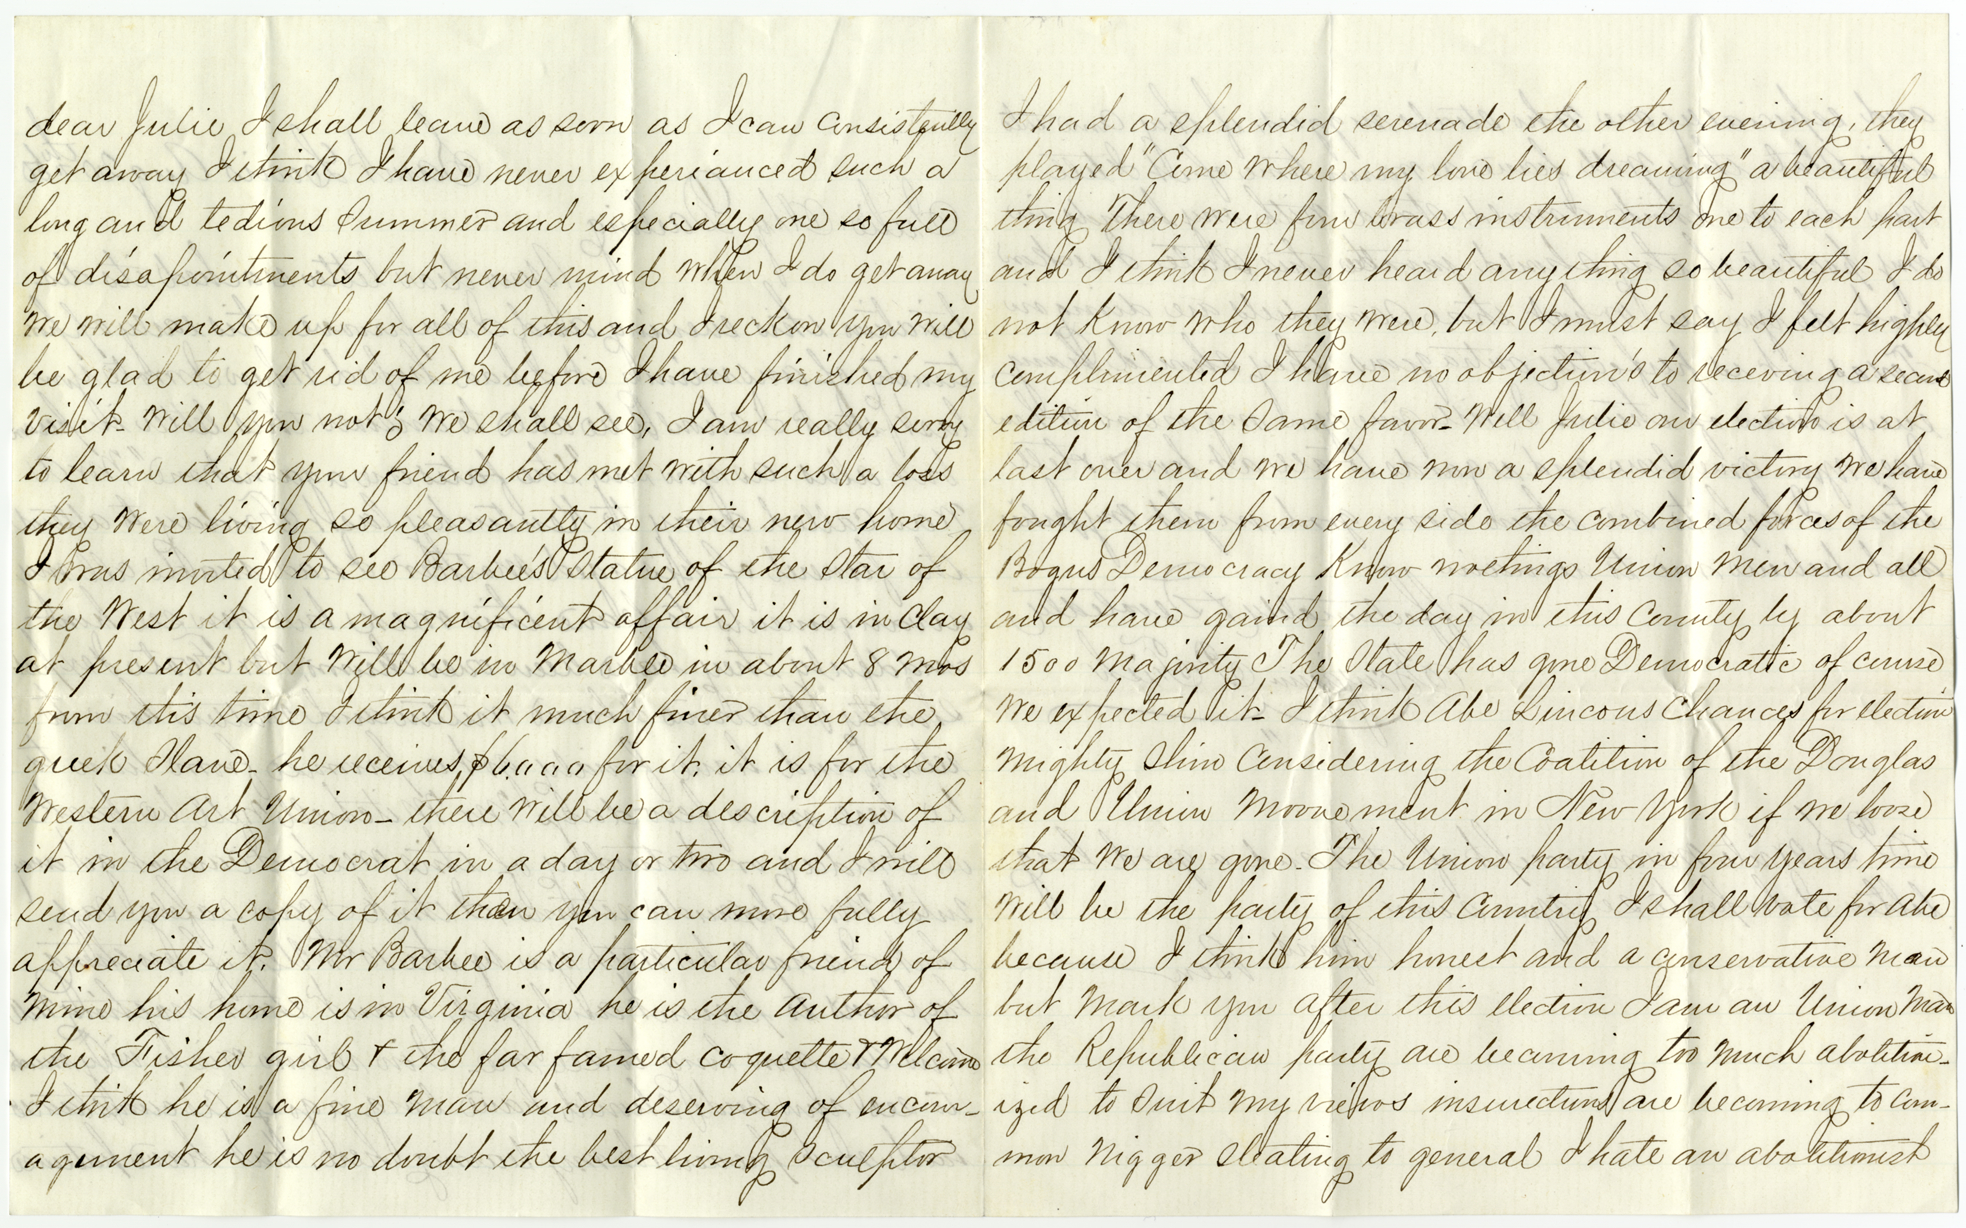 dear Julie I shall leave as soon as I can consistently
get away I think I have never experianced such a
long and tedious Summer and especially one so full
of disapointments but never mind when I do get away
we will make up for all of this and I reckon you will
be glad to get rid of me before I have finished my
visit - Will you not? We shall see, I am really sorry
to learn that your friend has met with such a loss
they were living so pleasantly in their new home
I was invited to see Barbee's Statue of the Star of
the West it is a magnificent affair it is in Clay
at present but will be in Marble in about 8 mos
from this time I think it much finer than the
greek Slave - he receives $6,000 for it, it is for the
Western Art Union - there will be a description of
it in the Democrat in a day or two and I will
send you a copy of it then you can more fully
appreciate it. Mr Barbee is a particular friend of
mine his home is in Virginia he is the Author of
the Fisher girl & the far famed coquette & Welcome
I think he is a fine man and deserving of encour-
agement he is no doubt the best living Sculptor
I had a splendid serenade the other evening, they
played "Come Where my love lies dreaming" a beautiful
thing There were four brass instruments one to each part
and I think I never heard anything so beautiful I do
not Know who they were, but I must say I felt highly
complimented I have no objection's to receiving a second
edition of the Same favor - Well Julie our election is at
last over and we have won a splendid victory We have
fought them from every side the combined forces of the
Bogus Democracy Know nothings Union Men and all
and have gaind the day in this County by about
1500 Majority The State has gone Democratic of course
We expected it - I think Abe Lincons Chances for election
Mighty Slim Considering the Coalition of the Douglas
and Union Moovement in New York if we loose
that we are gone - The Union party in four years time
Will be the party of this Country I shall vote for Abe
because I think him honest and a conservative Man
but Mark you after this election I am an Union Man
the Republican party are becoming too much abolition-
ized to Suit My views insurections are becoming to com-
mon Nigger Sleating to general I hate an abolitionist